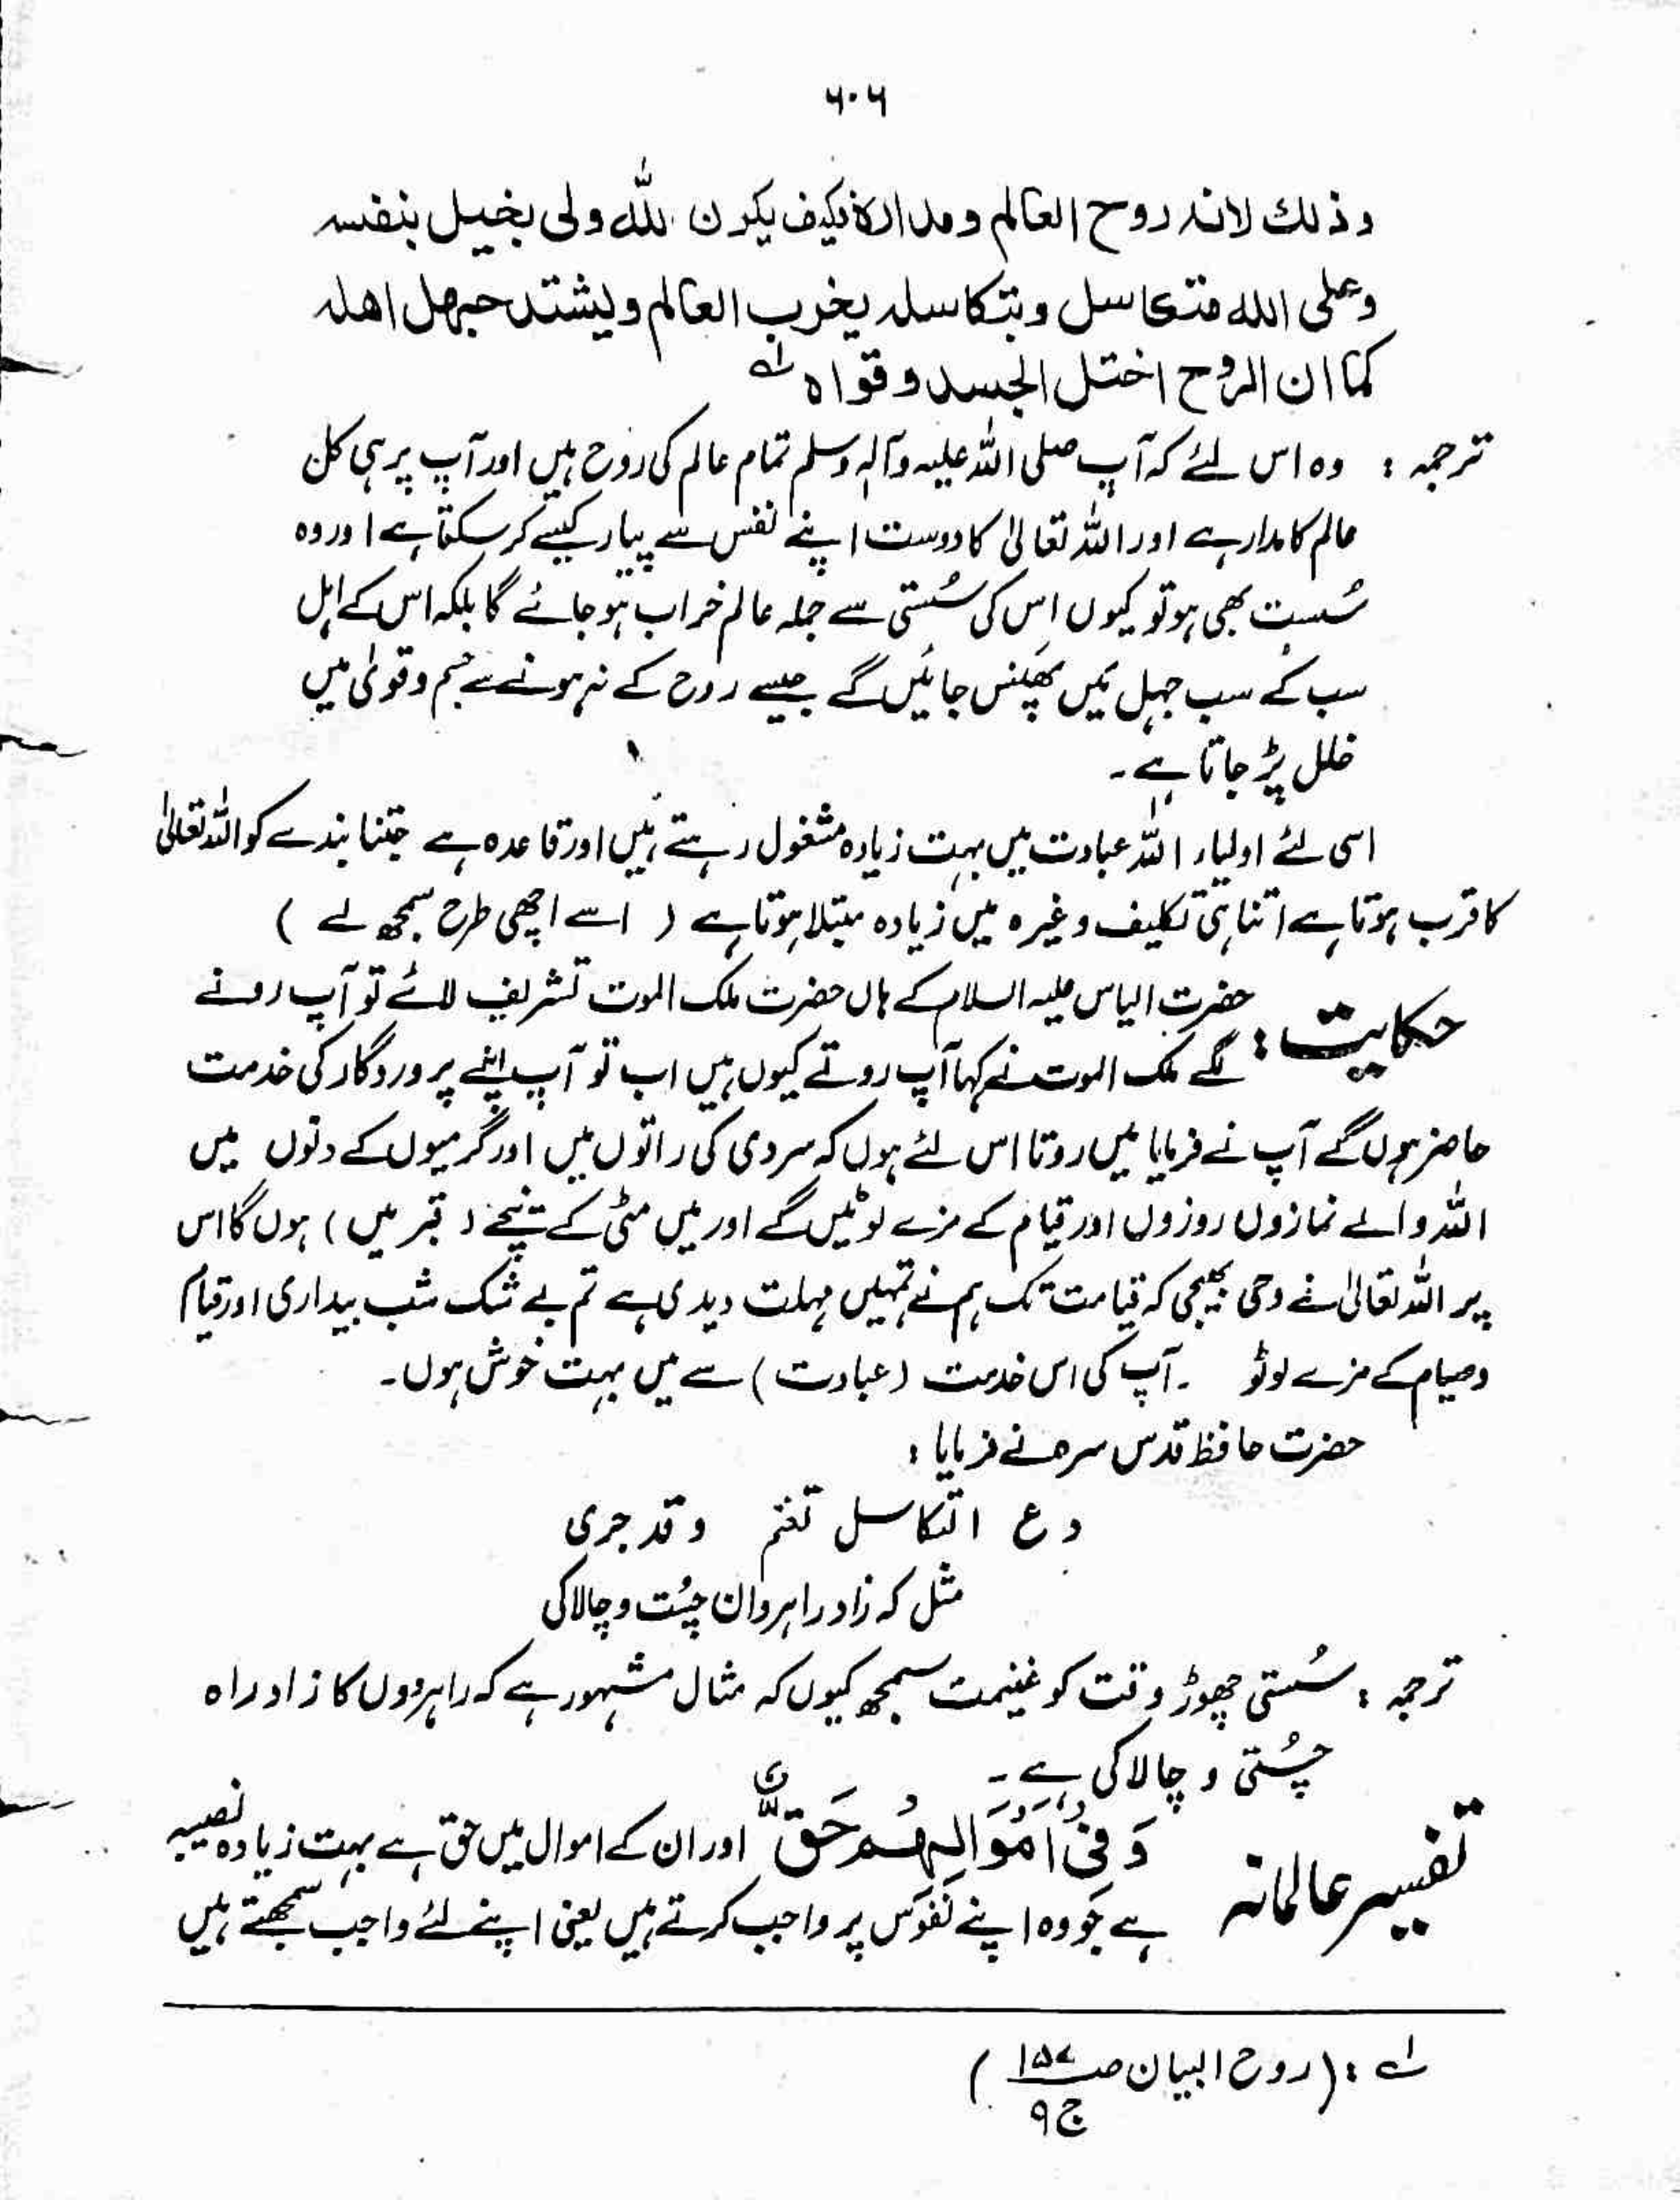 ۶۰۶
وذلك لانه روح العالم ومداره فكيف يكون لله ولى بخيل بنفسه
وعلى الله فتكاسل وبتكاسله يخرب العالم ويشتد جهل اهله
كما ان الروح اختل الجسد وقواه لے
ترجمہ : وہ اس لئے کہ آپ صلی اللہ علیہ وآلہ وسلم تمام عالم کی روح ہیں اور آپ پر ہی کل
عالم کا مدار ہے اور اللہ تعالیٰ کا دوست اپنے نفس سے پیار کیسے کر سکتا ہے اور وہ
سُست بھی ہو تو کیوں اس کی سُستی سے جملہ عالم خراب ہو جائے گا بلکہ اس کے اہل
سب کے سب جہل میں پھنس جائیں گے جیسے روح کے نہ ہونے سے جسم و قویٰ میں
خلل پڑ جاتا ہے۔
اسی لئے اولیاء اللہ عبادت میں بہت زیادہ مشغول رہتے ہیں اور قاعدہ ہے جتنا بندے کو اللہ تعالیٰ
کا قرب ہوتا ہے اتنا ہی تکلیف وغیرہ میں زیادہ مبتلا ہوتا ہے ( اسے اچھی طرح سمجھ لے )
حکایت : حضرت الیاس علیہ السلام کے ہاں حضرت ملک الموت تشریف لائے تو آپ رونے
لگے ملک الموت نے کہا آپ روتے کیوں ہیں اب تو آپ اپنے پروردگار کی خدمت
حاضر ہوں گے آپ نے فرمایا میں روتا اس لئے ہوں کہ سردی کی راتوں میں اور گرمیوں کے دنوں میں
اللہ والے نمازوں روزوں اور قیام کے مزے لوٹیں گے اور میں مٹی کے نیچے ( قبر میں ) ہوں گا اس
پر اللہ تعالیٰ نے وحی بھیجی کہ قیامت تک ہم نے تمہیں مہلت دیدی ہے تم بے شک شب بیداری اور قیام
وصیام کے مزے لوٹو ۔ آپ کی اس خدمت ( عبادت ) سے میں بہت خوش ہوں۔
حضرت حافظ قدس سرہ نے فرمایا :
دع التکاسل تغنم وقد جری
مثل کہ زاد راہروان چُست و چالاکی
ترجمہ : سُستی چھوڑ وقت کو غنیمت سمجھ کیوں کہ مثال مشہور ہے کہ راہرووں کا زاد راہ
چُستی و چالاکی ہے ۔
تفسیر عالمانہ وَفِیْ اَمْوَالِهِمْ حَقٌّ اور ان کے اموال میں حق ہے بہت زیادہ نصیبہ
ہے جو وہ اپنے نفوس پر واجب کرتے ہیں یعنی اپنے لئے واجب سمجھتے ہیں
لے : ( روح البیان صـ ۱۵۷ ج ۹ )